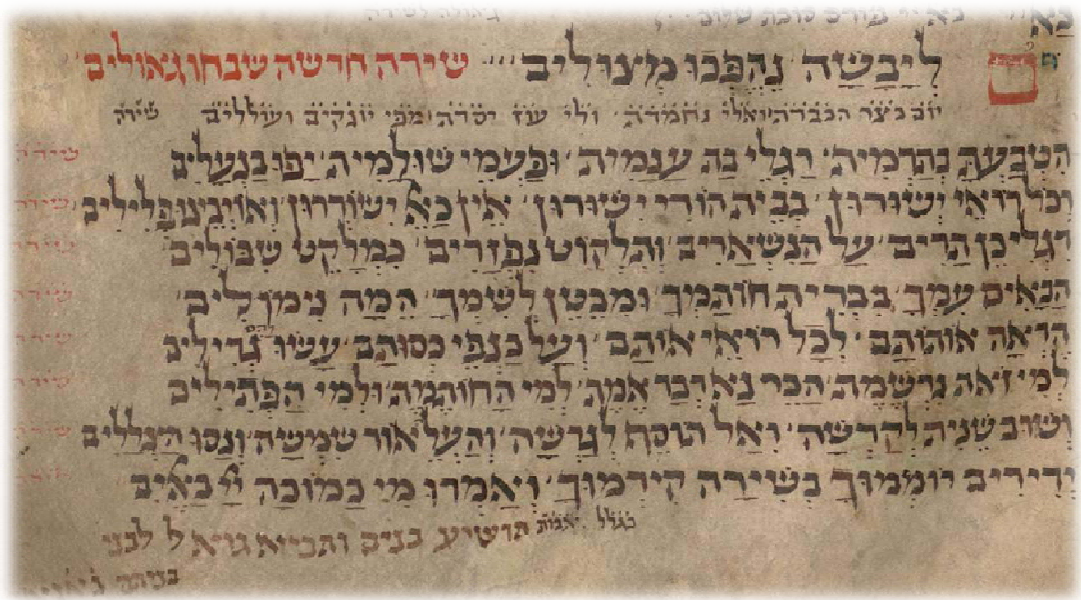 גאולה לשירה סוכת שלום
ליבשה נהפכו מצולים שירה חדשה שבחו גאולים
ולי עוז יסדה מפי יונקים ועוללים שירה
הטבעת בתרמית רגלי בת ענמית ופעמי שולמית יפו בנעלים שירה
וכל רואי ישורון בבית הודי ישורון אין כאל ישוררון ואויבינו פלילים שירה
דגלי כן תרים על הנשארים ותלקוט נפזרים כמלקט שבולים שירה
הבאים עמך בברית חותמך ומבטן לשמך המה נימולים שירה
הראה אותותם לכל רואי אותם ועל כנפי כסותם עשו גדילים שירה
למי זאת נרשמת הכר נא דבר אמת למי החותמת ולמי הפתילים שירה
ושוב שנית לקדשה ואל תוסף לגרשה והעל אור שמשה ונסו הצללים שירה
ידידים רוממוך בשירה קידמוך ואמרו מי כמוכה יי באלים
בגלל אבות תושיע בנים ותביא גואל לבני
בניהם